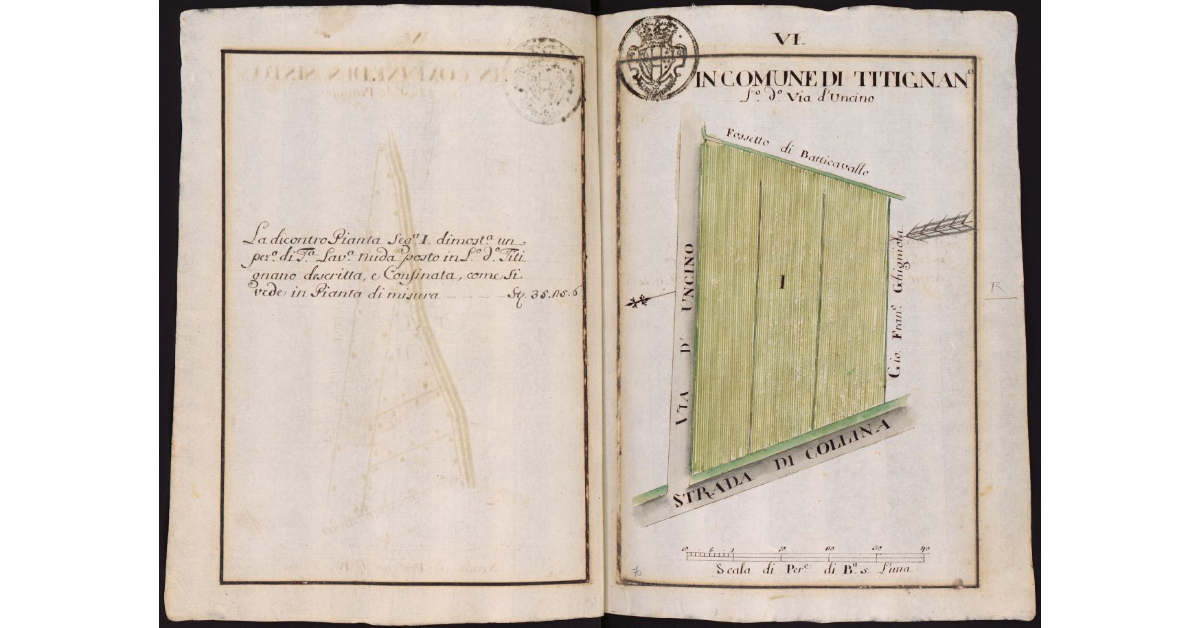 La dicontro Pianta Seg.ª I. dimost.ª un
per.º di T.ª Lav.ª nuda posto in L.º d.º Titi
gnano descritta, e Confinata, come Si
vede in Pianta di misura St. 35.
VI.
IN COMUNE DI TITIGNANº
L.º d.º Via d'Uncino
Fossetto di Batticavallo
VIA D' UNCINO
I
Gio. Fran.º Ghignola
STRADA DI COLLINA
10 5 1 10 20 30 40
Scala di Per.e di B.ª 5. l'una